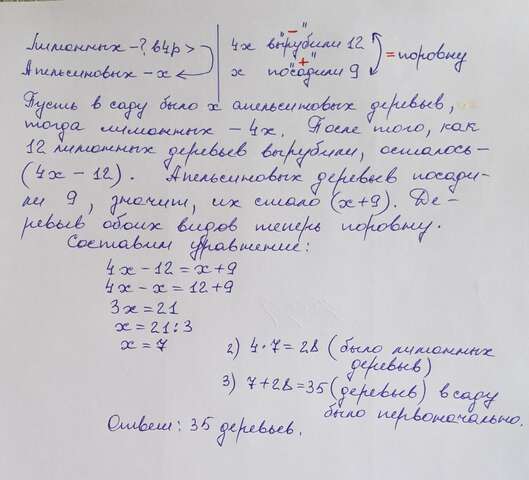 Лимонных - ? в 4 р >
Апельсиновых - x
4x вырубили 12 "-"
x посадили 9 "+"
= поровну
Пусть в саду было x апельсиновых деревьев,
тогда лимонных - 4x. После того, как
12 лимонных деревьев вырубили, осталось -
(4x - 12). Апельсиновых деревьев посади-
ли 9, значит, их стало (x+9). Де-
ревьев обоих видов теперь поровну.
Составим уравнение:
4x - 12 = x + 9
4x - x = 12 + 9
3x = 21
x = 21 : 3
x = 7
2) 4 · 7 = 28 (было лимонных
деревьев)
3) 7 + 28 = 35 (деревьев) в саду
было первоначально.
Ответ: 35 деревьев.